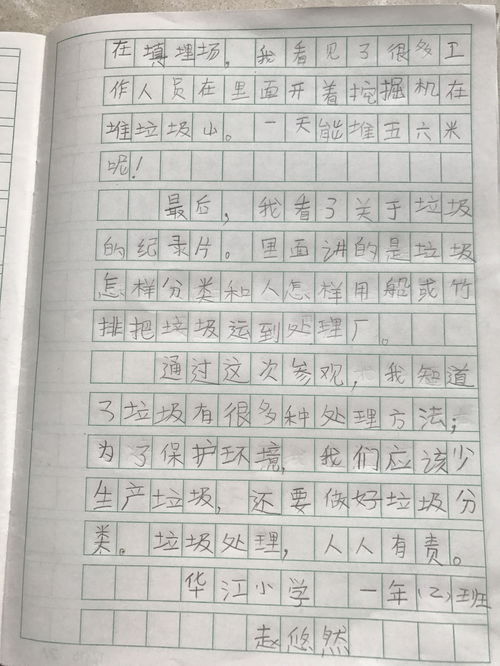 在填埋场，我看见了很多工
作人员在里面开着挖掘机在
堆垃圾山。一天能堆五六米
呢！
最后，我看了关于垃圾
的纪录片。里面讲的是垃圾
怎样分类和人怎样用船或竹
排把垃圾运到处理厂。
通过这次参观，我知道
了垃圾有很多种处理方法；
为了保护环境，我们应该少
生产垃圾，还要做好垃圾分
类。垃圾处理，人人有责。
华江小学 一年（2）班
赵悠然